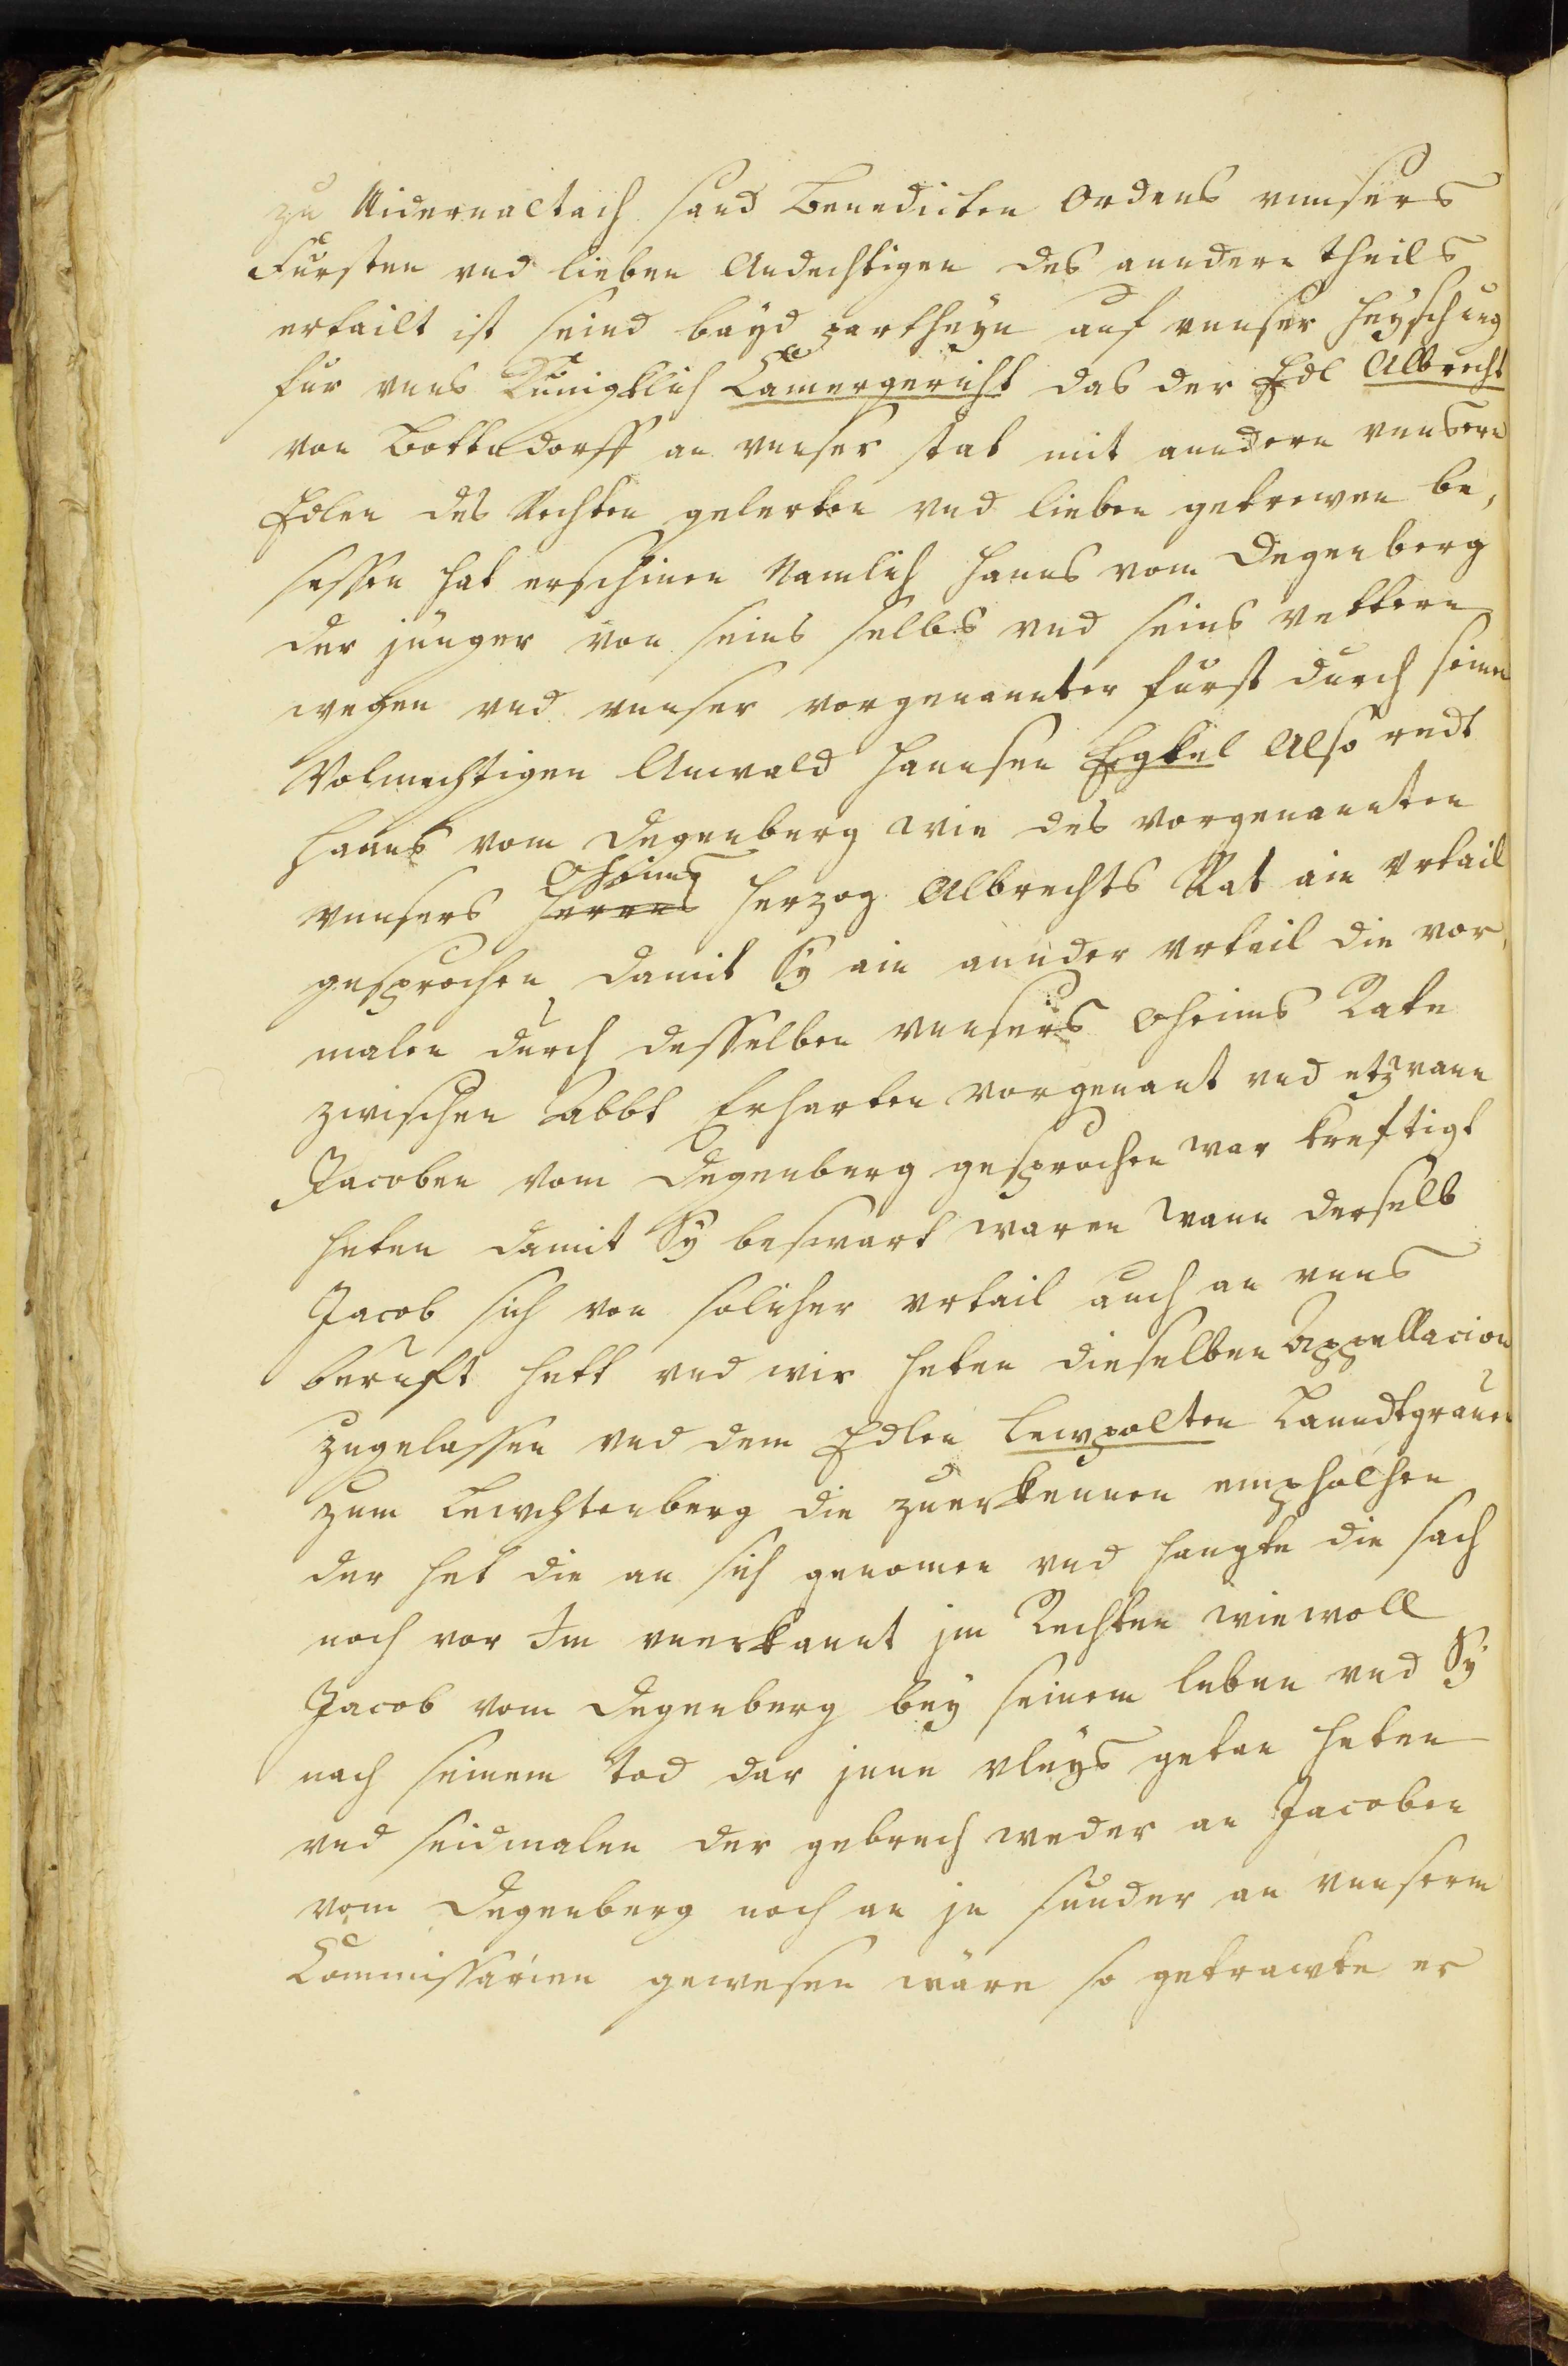 zu Nidernaltach sand Benedicten Ordens vunsers
Fursten vnd lieben Andechtigen des anndern theils
ertailt ist seind bayd partheyn auf vnnser heyschung
fur vnns Kunigklich Camergericht das der Edl Albrecht
von Bottndorff an vnnser stat mit anndern vnnsern
Edlen des Rechten gelerten vnd lieben getrewen be,
sessen hat erschinen Namlich Hanns vom Degenberg
der jünger von seins selbs vnd seins vettern
wegen vnd vnnser vorgenannter furst durch seinen
Volmechtigen Anwald Hannsen Egkel Also redt
Hanns vom Degenberg wie des vorgenannten
Oheims
vnnsers Herrns Herzog Albrechts Rat ain vrtail
gesprochen damit Sy ain annder vrtail die vor,
malen durch desselben vnnsers Oheims Rate
zwischen Abbt Erharten vorgenant vnd etzwann
Jacoben vom Degenberg gesprochen war kreftigt
heten damit Sy beswart waren wann derselb
Jacob sich von solicher vrtail auch an vnns
beruft hett vnd wir heten dieselben Appellacion
zugelassen vnd dem Edlen Lewpolten Lanndtgrauen
zum Lewchtenberg die zuerkennen empholhen
der het die an sich genomen vnd hangte die sach
noch vor Im vnerkannt jm Rechten wiewoll
Jacob vom Degenberg bey seinem leben vnd Sy
nach seinem tod dar jnne vleys getan heten
vnd seidmalen der gebrech weder an Jacoben
vom Degenberg noch an jn sunder an vnnserm
Commissarien gewesen wäre so getrawte er